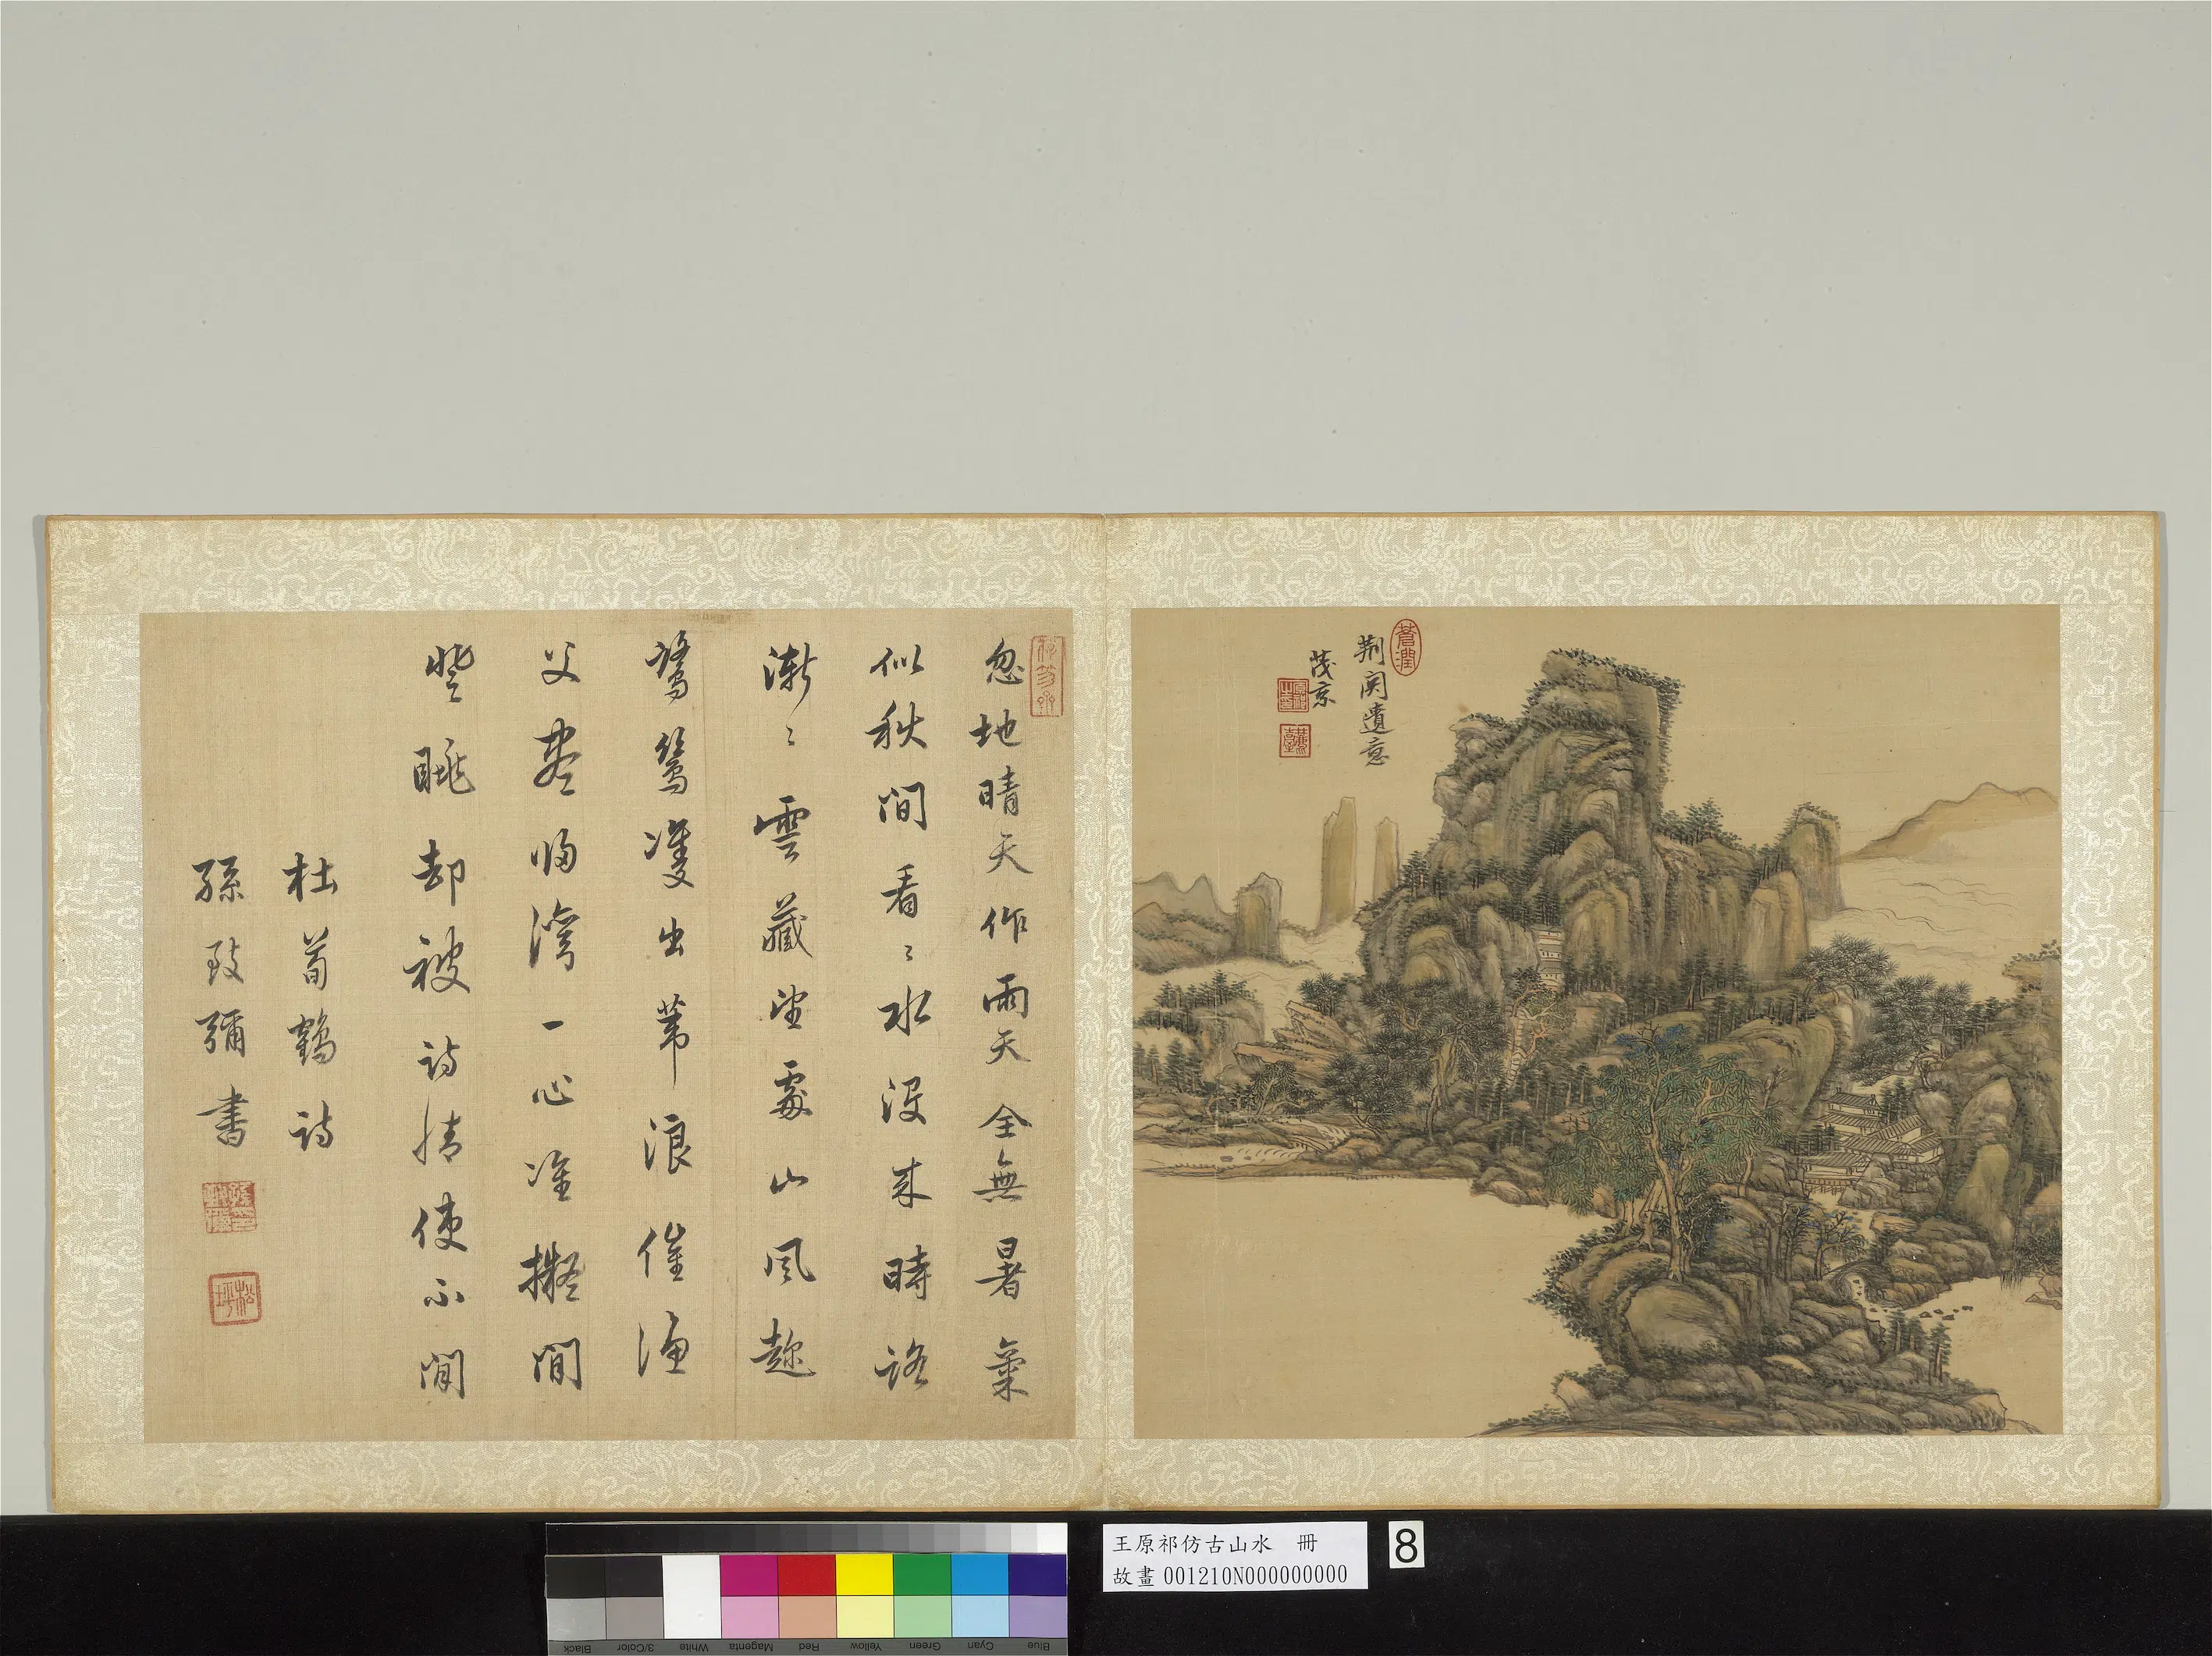 蒼潤
荆関遺意
茂京
麓臺
忽地晴天作雨天全無暑氣
似秋間看〻水沒來時路
漸〻雲藏望處山風趂
鷺鷥雙出葦浪催漁
父盡歸灣一心準擬閒
登眺却被詩情使不閒
杜荀鶴詩
孫致彌書
松坪
Black
3/Color
White
Magenta
Red
Yellow
Green
Cyan
Blue
王原祁仿古山水 冊
故畫 001210N000000000
8